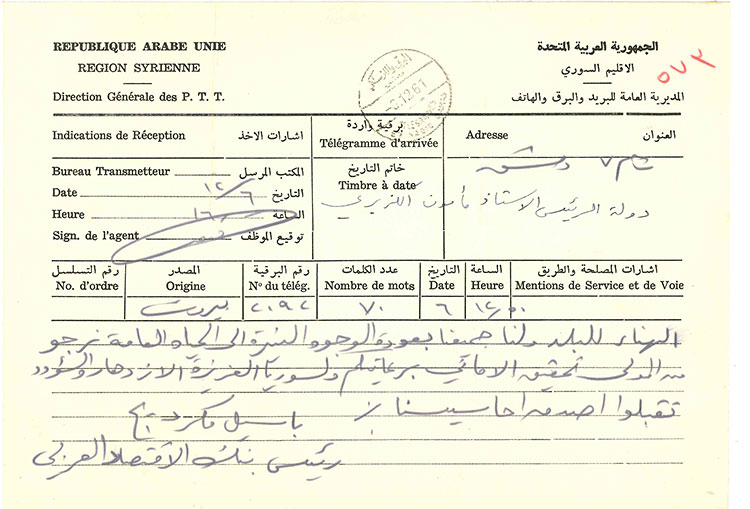 REPUBLIQUE ARABE UNIE
REGION SYRIENNE
Direction Générale des P. T. T.
الجمهورية العربية المتحدة
الاقليم السوري
المديرية العامة للبريد والبرق والهاتف
٥٧٣
Indications de Réception اشارات الاخذ
برقية واردة
Télégramme d'arrivée
Adresse العنوان
Bureau Transmetteur المكتب المرسل
Date ١٢/٦ التاريخ
Heure ١٦ الساعة
Sign. de l'agent توقيع الموظف
خاتم التاريخ
Timbre à date
دمشق
دولة الرئيس الاستاذ مأمون الكزبري
رقم التسلسل المصدر رقم البرقية عدد الكلمات التاريخ الساعة اشارات المصلحة والطريق
No. d'ordre Origine No du télég. Nombre de mots Date Heure Mentions de Service et de Voie
بيروت ٢٠٩٢ ٧٠ ٦ ١٢/٥٠
الهناء للبلد ولنا جميعا بعودة الوجوه النيرة الى الحياة العامة نرجو
من المولى تحقيق الاماني برعايتكم ولسوريا العزيزة الازدهار والسؤدد
تقبلوا اصدق احاسيسنا
باسيل
رئيس بنك الاقتصاد العربي